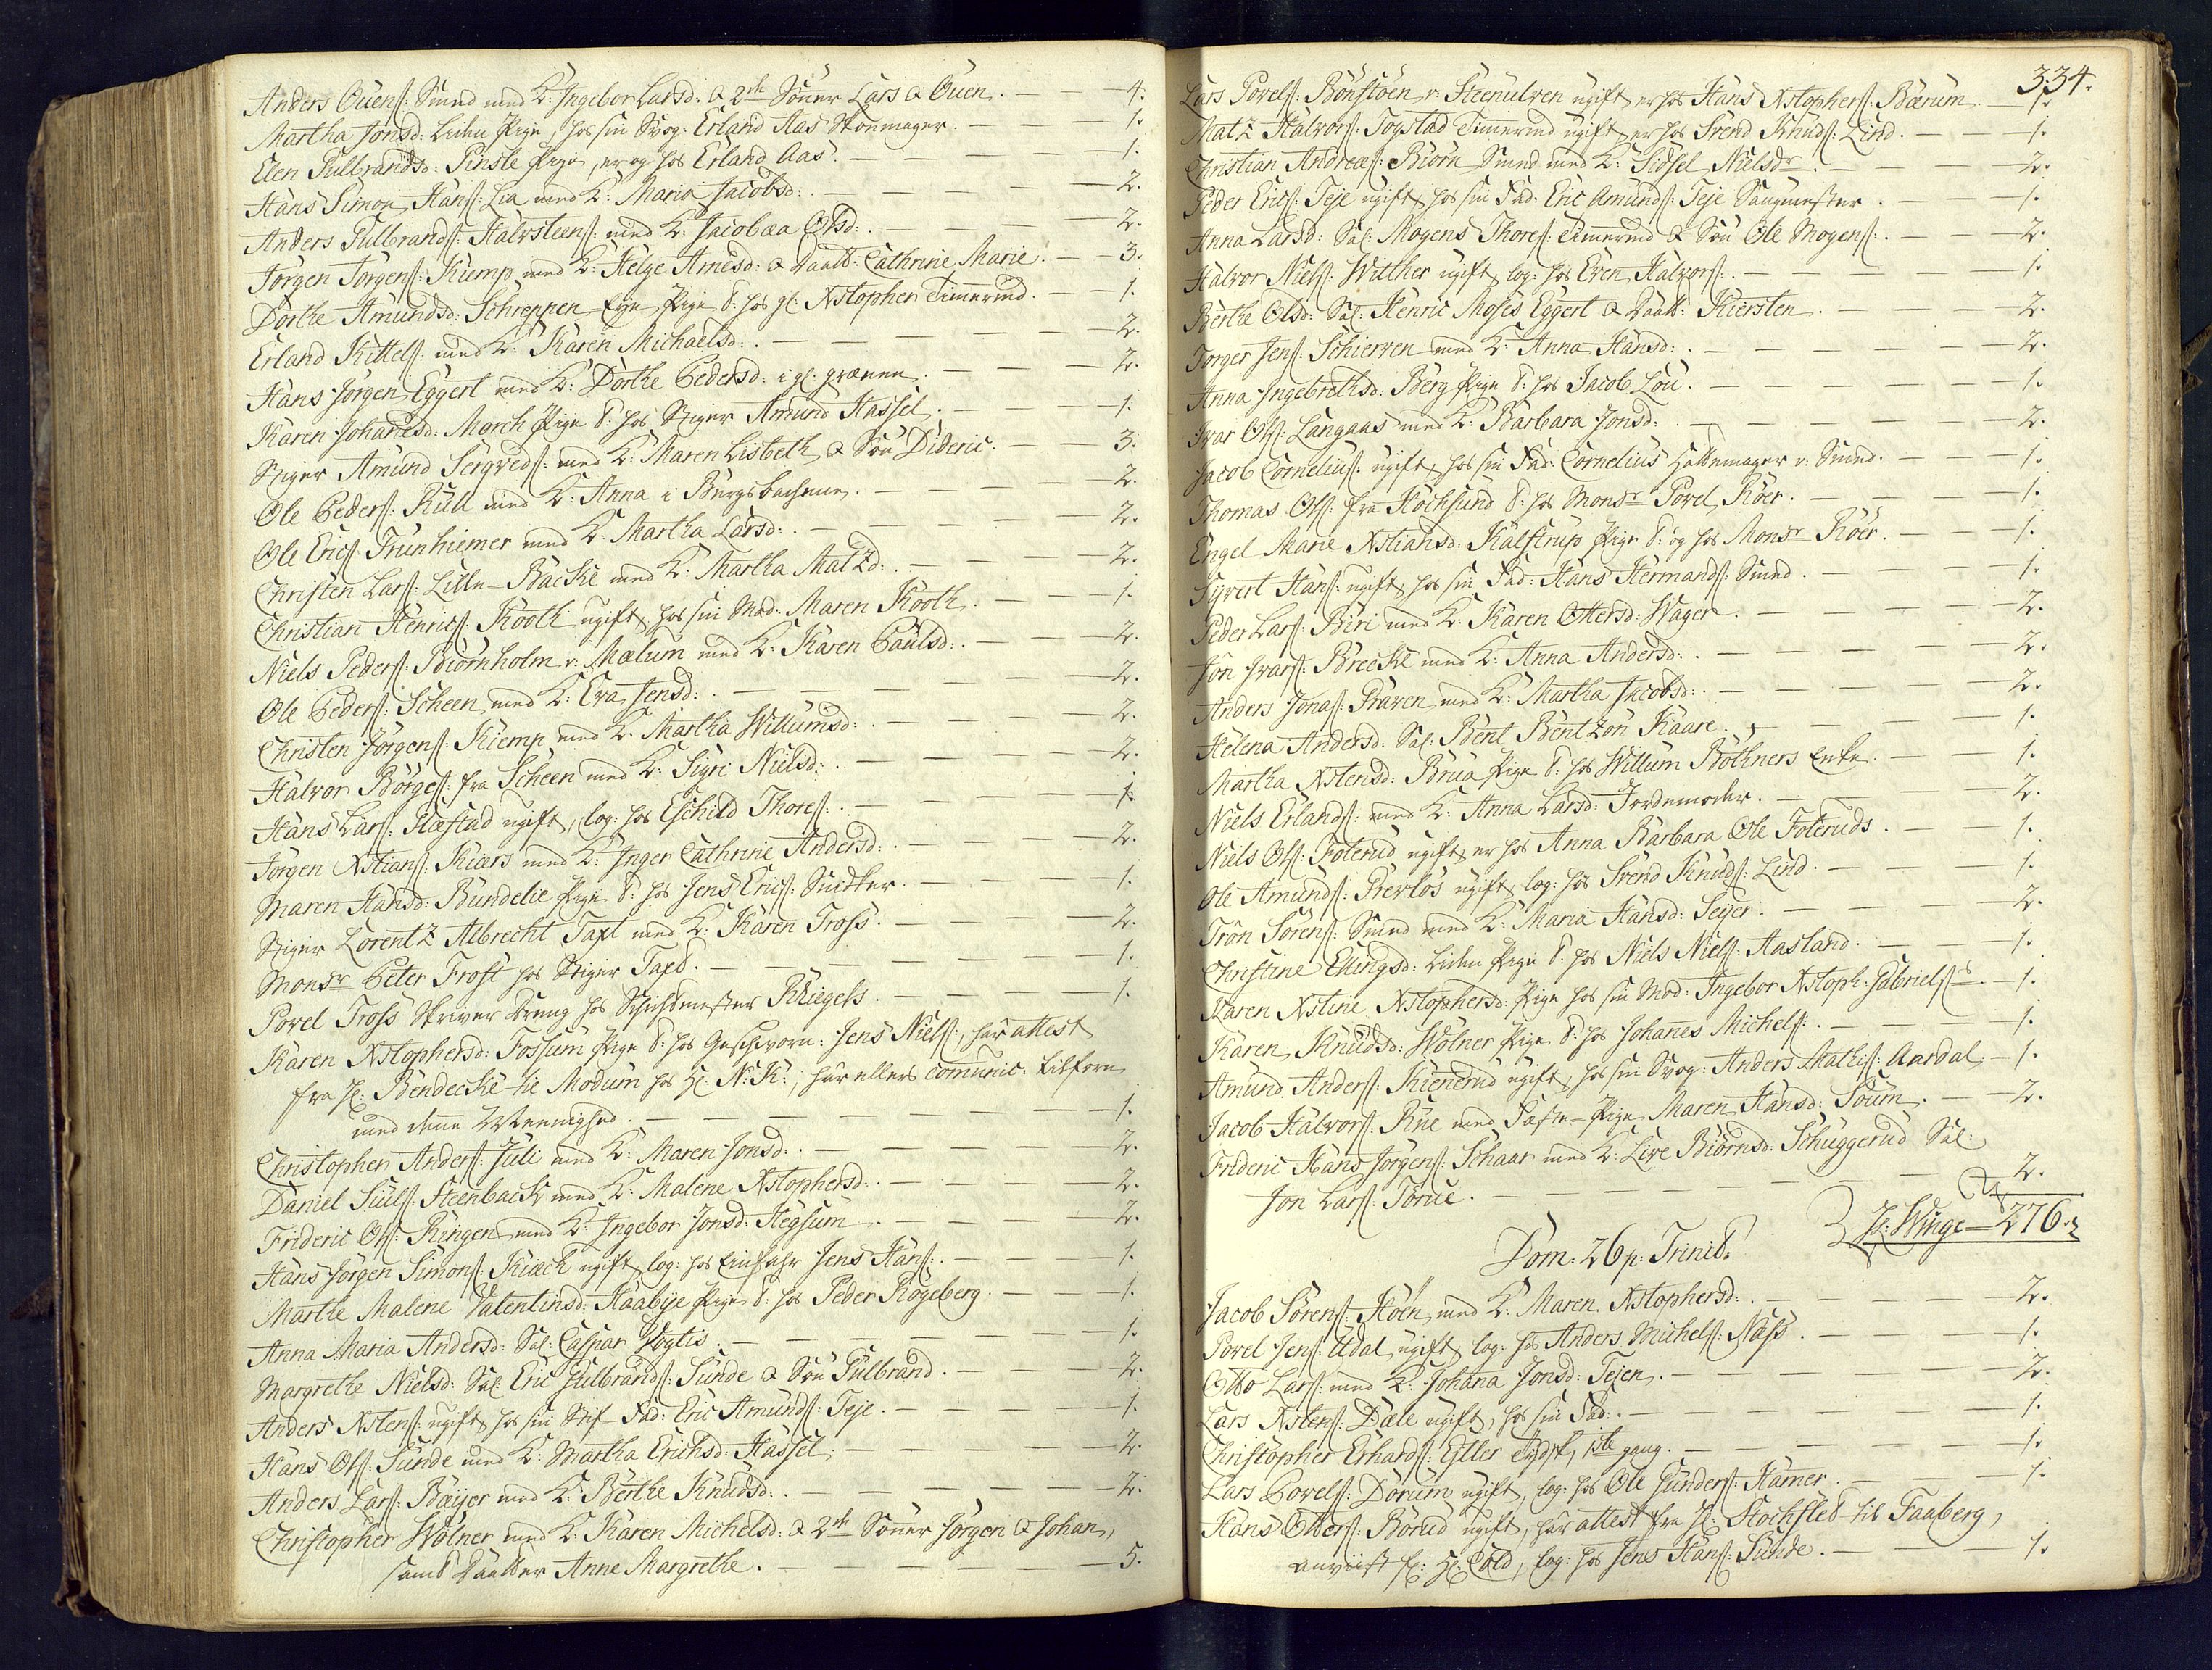 Anders Ouens: Smed med K: Ingebor Larsd: & 2de Sönner Lars & Ouen. 4.
Martha Jonsd: Liden Pige, hos sin Svog: Erland Aas Skomager. 1.
Elen Gulbrandsd: Pinsle Pige, er og hos Erland Aas. 1.
Hans Simon Hans: Lia med K: Maria Jacobsd: 2.
Anders Gulbrands: Halvsteens: med K: Jacobæa Olsd: 2.
Jörgen Jörgens: Kiemp med K: Helge Arnesd: & Daatt: Cathrine Marie. 3.
Dorthe Amundsd: Schreppen Pige T: hos gl: Xstopher Timermd. 1.
Erland Kittels: med K: Karen Michaelsd: 2.
Hans Jörgen Eggert med K: Dorthe Pedersd: i gl: grænen. 2.
Karen Johansd: Morch Pige T: hos Stiger Amund Hassel. 1.
Stiger Amund Sergveds: med K: Maren Lisbeth & Sön Dideric. 3.
Ole Peders: Rull med K: Anna i Bürgsbachene. 2.
Ole Erics: Trünhiemer med K: Martha Larsd: 2.
Christen Lars: Lille-Backe med K: Martha Matzd: 2.
Christian Henrics: Kooth ugift, hos sin Mod: Maren Kooth. 1.
Niels Peders: Biörnholm v: Mælum med K: Karen Paulsd: 2.
Ole Peders: Scheen med K: Eva Jensd: 2.
Christen Jörgens: Kiemp med K: Martha Willumsd: 2.
Halvor Börges: fra Scheen med K: Sigri Nielsd: 2.
Hans Lars: Hæstad ugift, log: hos Eschild Thores: 1.
Jörgen Xstians: Kiærs med K: Inger Cathrine Andersd: 2.
Maren Hansd: Bundelie Pige T: hos Jens Erics: Snidker. 1.
Stiger Lorentz Albrecht Taxt med K: Karen Tross. 2.
Monsr Peter Frost hos Stiger Taxt. 1.
Povel Tross Skriver Dreng hos Schichtmester Kliegels. 1.
Karen Xstophersd: Fossum Pige T: hos Geschworn: Jens Niels:, har attest
fra H: Bendecke til Modum hos H: N: K:, har ellers comunic: tilforn
med denne Menighed. 1.
Christopher Anders: Juli med K: Maren Jonsd: 2.
Daniel Juuls: Steenback med K: Malene Xstophersd: 2.
Frideric Ols: Ringen med K: Ingebor Jonsd: Hegsum 2.
Hans Jörgen Simons: Kiæck ugift, log: hos Einfahr Jens Hans: 1.
Marthe Malene Valentinsd: Haabye Pige T: hos Peder Rögeberg. 1.
Anna Maria Andersd: Sal: Caspar Vogtis. 1.
Margrethe Nielsd: Sal: Eric Gulbrands: Sunde & Sön Gulbrand. 2.
Anders Xstens: ugift, hos sin Stif-Fad: Eric Amunds: Teje. 1.
Hans Ols: Sunde med K: Martha Erichsd: Hassel. 2.
Anders Lars: Bayer med K: Berthe Knudsd: 2.
Christopher Wölner med K: Karen Michelsd: & 2de Sönner Jörgen & Johan,
samt Daatter Anne Margrethe. 5.
334.
Lars Povels: Bönstöen v: Steenulven ugift, er hos Hans Xstophers: Bærum. 1.
Matz Halvors: Togstad Timermd ugift, er hos Svend Knuds: Lind. 1.
Christian Andreas: Biörn Smed med K: Sidsel Nielsdr. 2.
Peder Erics: Teje ugift, hos sin Fad: Eric Amunds: Teje Saugmester. 1.
Anna Larsd: Sal: Mogens Thores: Timermd & Sön Ole Mogens: 2.
Halvor Niels: Witther ugift, log: hos Even Halvors: 1.
Berthe Olsd: Sal: Henric Moses Eggert & Daatt: Kiersten. 2.
Torger Jens: Schierven med K: Anna Hansd: 2.
Anna Ingebrethsd: Berg Pige T: hos Jacob Lou. 1.
Ivar Ols: Langaas med K: Barbara Jonsd: 2.
Jacob Cornelius: ugift, hos sin Fad: Cornelius Hattemager v: Smed. 1.
Thomas Ols: fra Hochsund T: hos Monsr Povel Röer. 1.
Engel Marie Xstiansd: Kalstrup Pige T: og hos Monsr Röer. 1.
Syvert Hans: ugift, hos sin Fad: Hans Hermands: Smed. 1.
Peder Lars: Biri med K: Karen Ottersd: Wager. 2.
Jon Ivars: Brecke med K: Anna Andersd: 2.
Anders Jonas: Praven med K: Martha Jacobsd: 2.
Helena Andersd: Sal: Bent Bentzön Kaare. 1.
Martha Xstensd: Brua Pige T: hos Willum Böthners Enke. 1.
Niels Erlands: med K: Anna Larsd: Jordemoder. 2.
Niels Ols: Foterud ugift, er hos Anna Barbara Ole Foteruds. 1.
Ole Amunds: Prevlös ugift, log: hos Svend Knuds: Lind. 1.
Trön Sörens: Smed med K: Maria Hansd: Seyer. 2.
Christine Ellingsd: Liden Pige T: hos Niels Niels: Aasland. 1.
Karen Xstine Xstophersd: Pige hos sin Mod: Ingebor Xstoph: Gabriels: 1.
Karen Knudsd: Wölner Pige T: hos Johannes Michels: 1.
Amund Anders: Kienerud ugift, hos sin Svog: Anders Mathis: Aardal. 1.
Jacob Halvors: Rue med Fæste-Pige Maren Hansd: Soum. 2.
Frideric Hans Jörgens: Schaar med K: Live Biörnsd: Schuggerud Sal:
Jon Lars: Torue. 2.
H: Winge 276.
Dom: 26 p: Trinit:
Jacob Sörens: Höen med K: Maren Xstophersd: 2.
Povel Jens: Udal ugift, log: hos Anders Michels: Næss. 1.
Otto Lars: med K: Johana Jonsd: Tejen. 2.
Lars Xstens: Dæle ugift, hos sin Fad: 1.
Christopher Erhards: Esller Tydsk, 1ste gang. 1.
Lars Povels: Dörum ugift, log: hos Ole Gunders: Hamer. 1.
Hans Otters: Börud ugift, har attest fra H: Stochfled til Faaberg,
anviist H: Cold, log: hos Jens Hans: Sunde. 1.